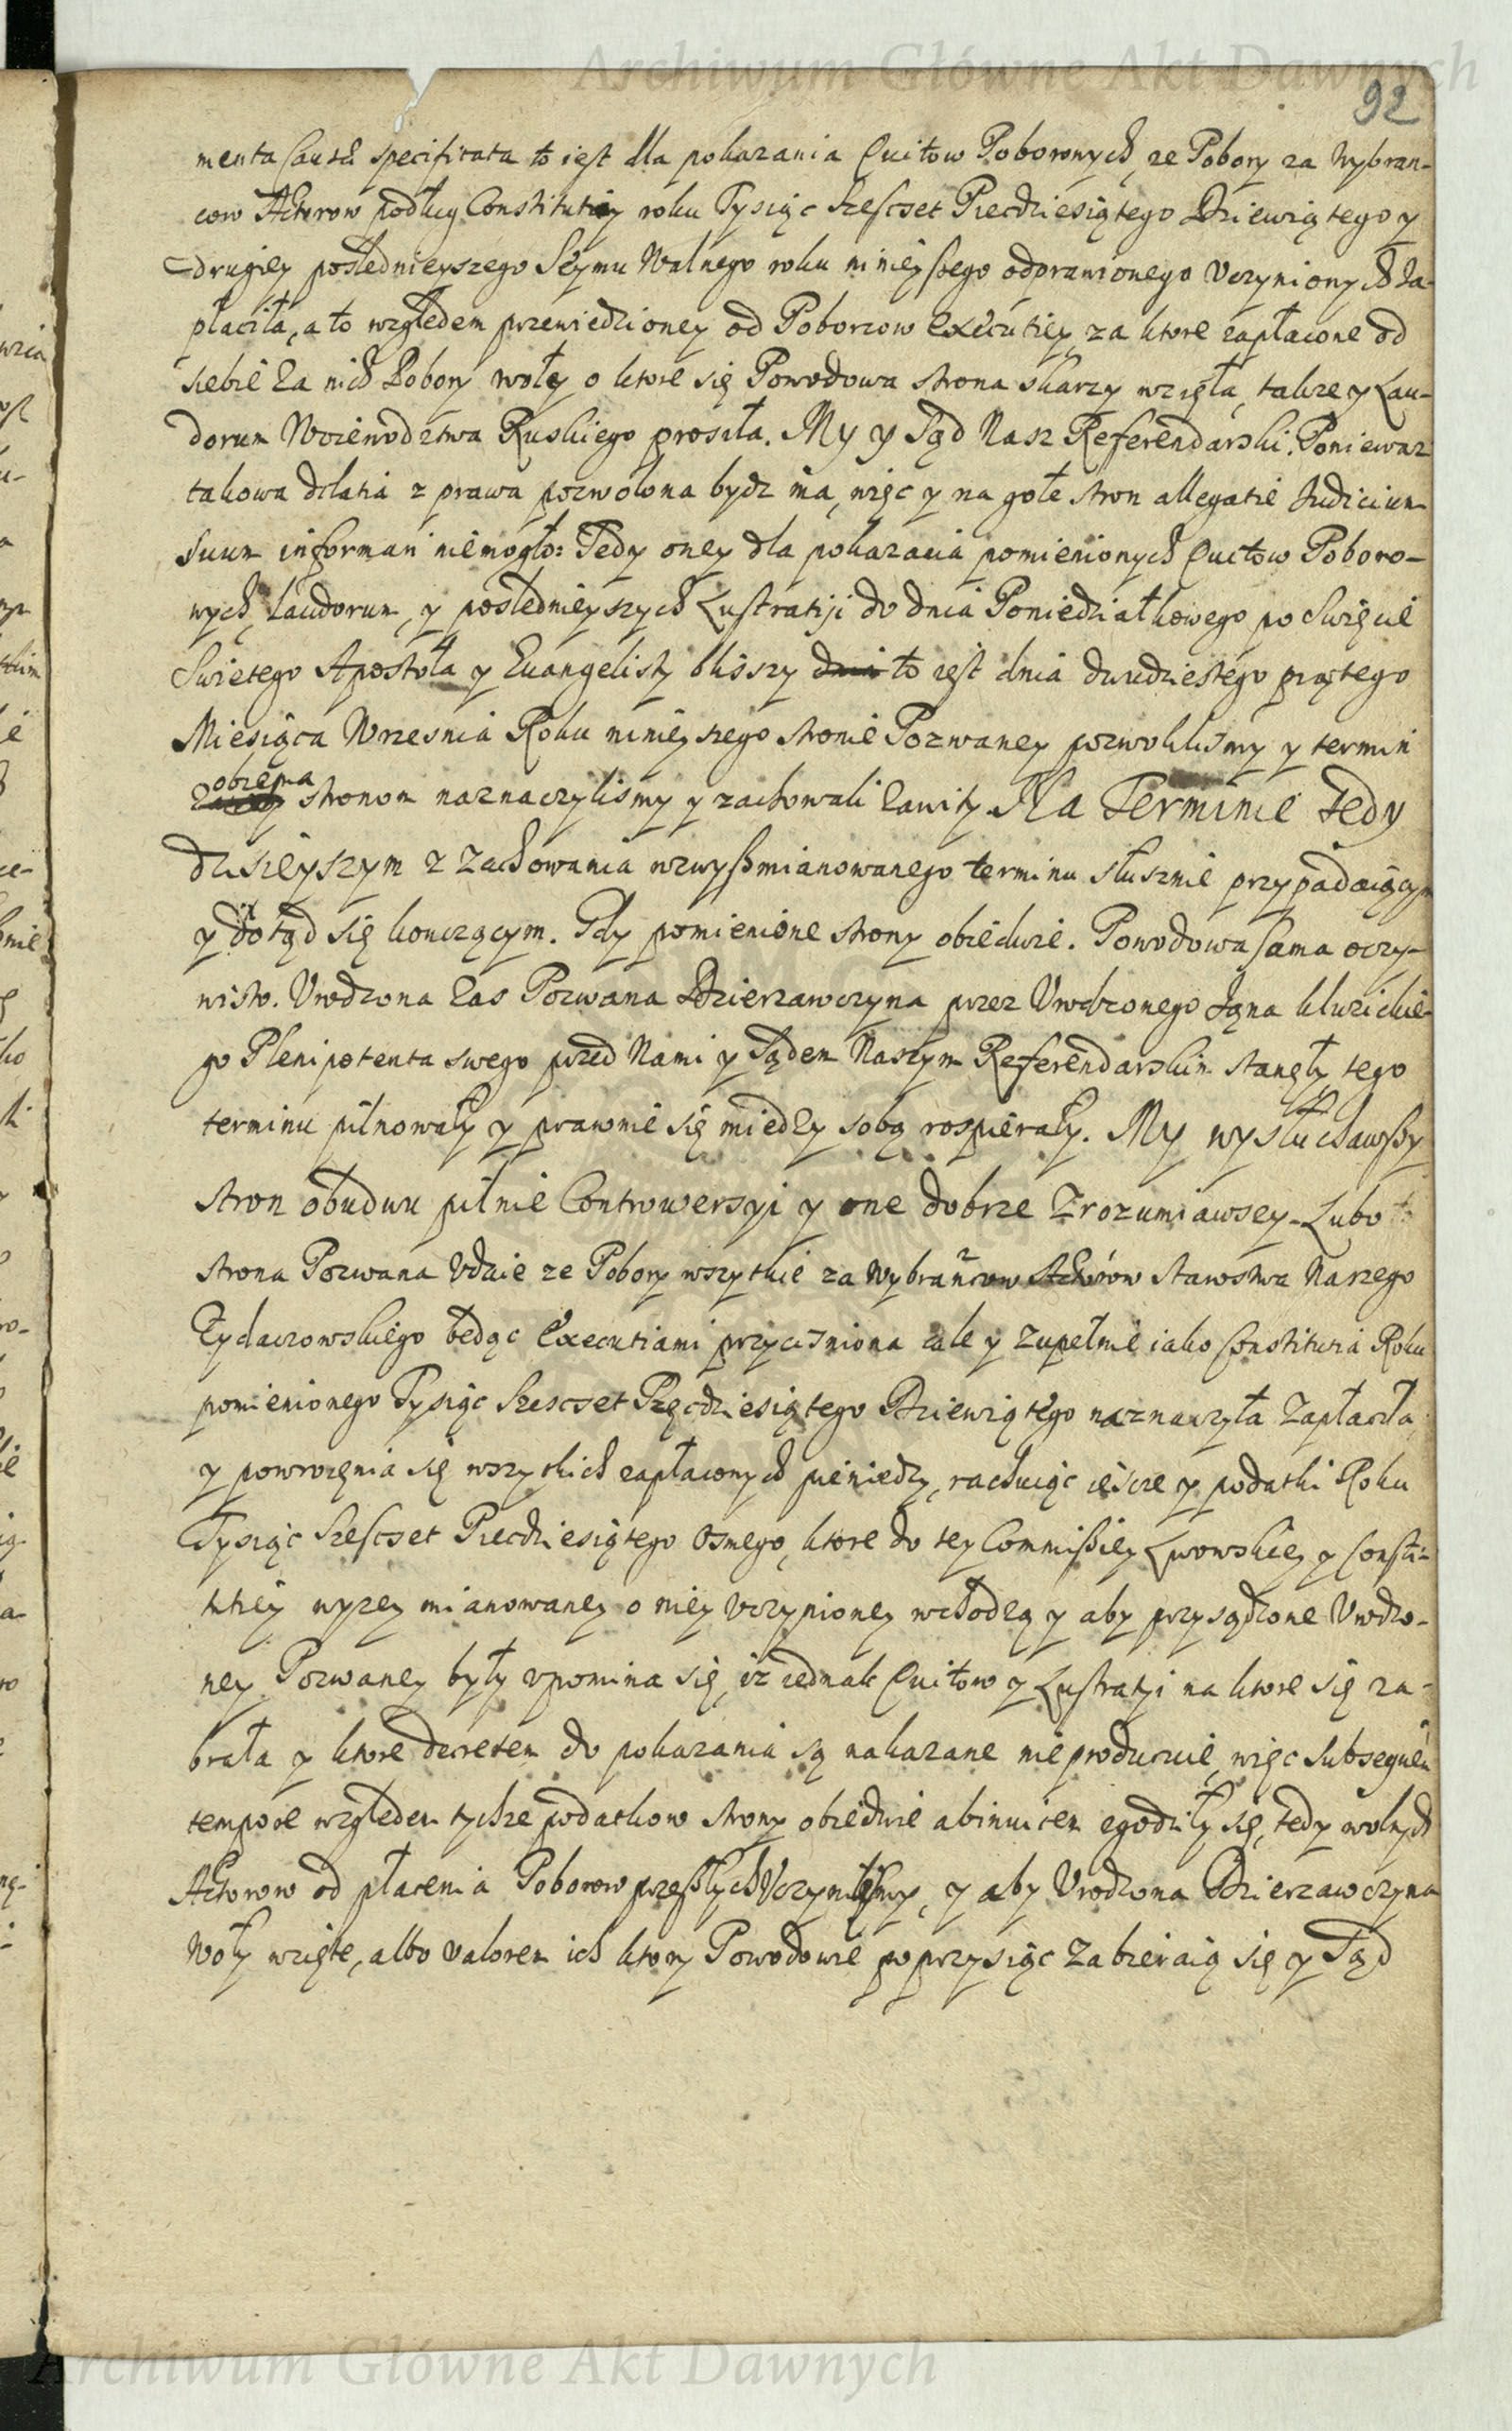 Archiwum Główne Akt Dawnych
92
menta Causa specificata to iest dla pokazania Quitow Poborowych, ze Pobory za Wybran-
cow Aktorow podług Constitutiey roku Tysiąc Szescset Piecdziesiątego Dziewiątego y
drugiey poslednieyszego Seymu Walnego roku ninieyszego odprawionego Vczynionych Za-
płaciła, a to względem przewiedzioney od Poborcow executiey, za ktore zapłacone od
siebie za nich Pobory woły o ktore się Powodowa strona skarzy wzięła, takze y Lau-
dorum Woiewodztwa Ruskiego prosiła. My y Sąd Nasz Referendarski. Poniewaz
takowa dilatia z prawa pozwolona bydz ma, więc y na gołe stron allegatie Iudicium
suum informari niemogło: Tedy oney dla pokazania pomienionych Quitow Poboro-
wych, Laudorum, y poslednieyszych Lustratiji do dnia Poniedziałkowego po Swięcie
Swietego Apostoła y Euangelisty bliszy dnia to iest dnia dwudziestego piątego
Miesiąca Wrzesnia Roku ninieyszego stronie Pozwaney pozwoliliśmy y termin
obiema
stronom naznaczyliśmy y zachowali zawity. Na Terminie tedy
dzisieyszym z zachowania wzwyszmianowanego terminu słusznie przypadaiącym
y dotąd się kończącym. Gdy pomienione strony obiedwie. Powodowa sama oczy-
wisto. Vrodzona zas Pozwana Dzierzawczyna przez Vrodzonego Iana Kluzickie-
go Plenipotenta swego przed Nami y Sądem Naszym Referendarskim stanęły, tego
terminu pilnowały y prawnie się miedzy sobą rospierały. My wysłuchawszy
stron obudwu pilnie Controwersyi y one dobrze Zrozumiawszy. Lubo
strona Pozwana Vdaie ze Pobory wszytkie za Wybrańcow Aktorow Starostwa Naszego
Zydaczowskiego bedąc Executiami przycisniona cale y zupełnie iako Constitutia Roku
pomienionego Tysiąc Szescset Pięcdziesiątego Dziewiątego naznaczyła Zapłaciła,
y powrocenia się wszytkich zapłaconych pieniedzy, rachuiąc ieszcze y podatki Roku
Tysiąc Szescset Piecdziesiątego Osmego, ktore do tey Commissiey Lwowskiey y Consti-
tutiey wyzey mianowaney o niey Vczynioney wchodzą y aby przysądzone Vrodzo-
ney Pozwaney były vpomina się, iz iednak Quitow y Lustratyi na ktore się za-
brała y ktore decretem do pokazania są nakazane nie producuie, więc Subsequen
tempore względem tychze podatkow strony obiedwie abinuicem zgodziły się, tedy wolnych
Aktorow od płacenia Poborow przeszłych Vczyniliśmy, y aby Vrodzona Dzierzawczyna
Woły wzięte, albo valorem ich ktory Powodowie poprzysiąc Zabieraią się y Sąd
Archiwum Główne Akt Dawnych